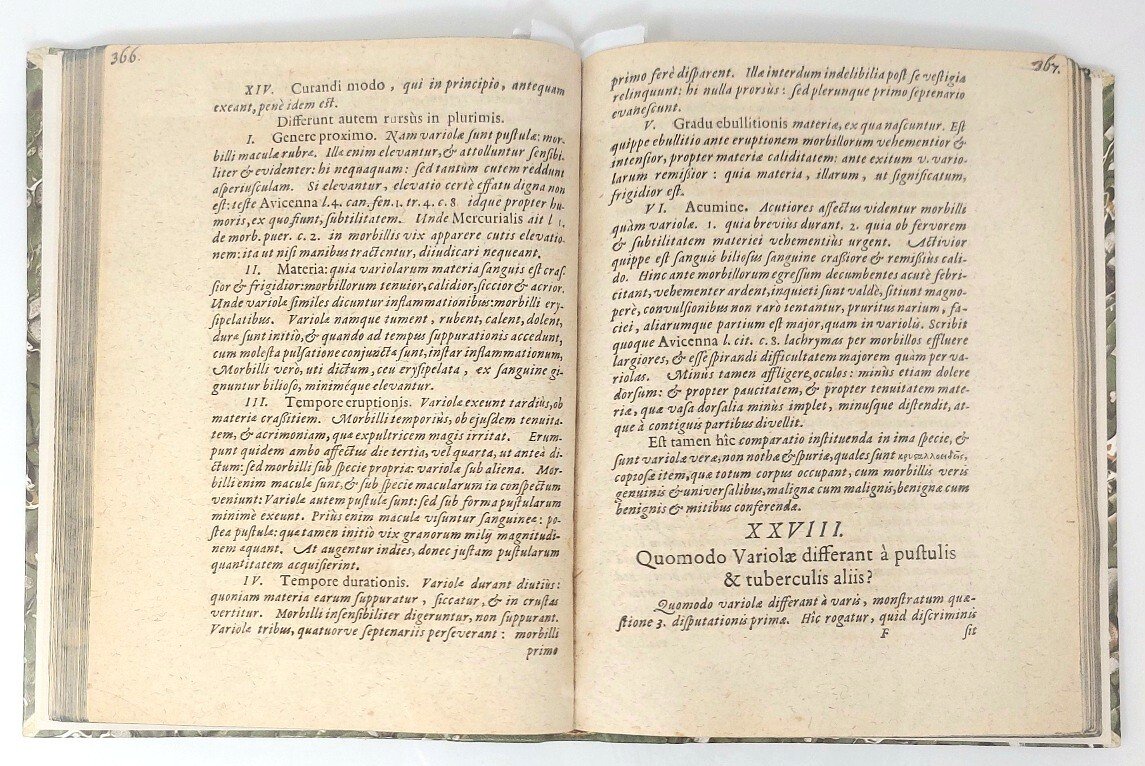 366.
XIV. Curandi modo, qui in principio, antequam
exeant, penè idem est.
Differunt autem rursùs in plurimis.
I. Genere proximo. Nam variolæ sunt pustulæ: mor-
billi maculæ rubræ. Illæ enim elevantur, & attolluntur sensibi-
liter & evidenter: hi nequaquam: sed tantùm cutem reddunt
asperiusculam. Si elevantur, elevatio certè effatu digna non
est: teste Avicenna l. 4. can. fen. 1. tr. 4. c. 8. idque propter hu-
moris, ex quo fiunt, subtilitatem. Unde Mercurialis ait l 1.
de morb. puer. c. 2. in morbillis vix apparere cutis elevatio-
nem: ita ut nisi manibus tractentur, diiudicari nequeant.
II. Materia: quia variolarum materia sanguis est cras-
sior & frigidior: morbillorum tenuior, calidior, siccior & acrior.
Unde variolæ similes dicuntur inflammationibus: morbilli ery-
sipelatibus. Variolæ namque tument, rubent, calent, dolent,
duræ sunt initiò, & quando ad tempus suppurationis accedunt,
cum molesta pulsatione conjunctæ sunt, instar inflammationum,
Morbilli verò, uti dictum, ceu erysipelata, ex sanguine gi-
gnuntur bilioso, miniméque elevantur.
III. Tempore eruptionis. Variolæ exeunt tardiùs, ob
materiæ crassitiem. Morbilli temporiùs, ob ejusdem tenuita-
tem, & acrimoniam, quæ expultricem magis irritat. Erum-
punt quidem ambo affectus die tertia, vel quarta, ut antea di-
ctum: sed morbilli sub specie propria: variolæ sub aliena. Mor-
billi enim maculæ sunt, & sub specie macularum in conspectum
veniunt: Variolæ autem pustulæ sunt: sed sub forma pustularum
minimè exeunt. Priùs enim maculæ visuntur sanguineæ: po-
stea pustulæ: quæ tamen initiò vix granorum milij magnitudi-
nem æquant. At augentur indies, donec justam pustularum
quantitatem acquisierint.
IV. Tempore durationis. Variolæ durant diutiùs:
quoniam materia earum suppuratur, siccatur, & in crustas
vertitur. Morbilli insensibiliter digeruntur, non suppurant.
Variolæ tribus, quatuorve septenariis perseverant: morbilli
primo
367.
primo ferè disparent. Illæ interdum indelibilia post se vestigia
relinquunt: hi nulla prorsùs: sed plerunque primo septenario
evanescunt.
V. Gradu ebullitionis materiæ, ex qua nascuntur. Est
quippe ebullitio ante eruptionem morbillorum vehementior &
intensior, propter materiæ caliditatem: ante exitum v. vario-
larum remissior: quia materia, illarum, ut significatum,
frigidior est.
VI. Acumine. Acutiores affectus videntur morbilli
quàm variolæ. 1. quia breviùs durant. 2. quia ob fervorem
& subtilitatem materiei vehementiùs urgent. Activior
quippe est sanguis biliosus sanguine crassiore & remissiùs cali-
do. Hinc ante morbillorum egressum decumbentes acutè febri-
citant, vehementer ardent, inquieti sunt valdè, sitiunt magno-
perè, convulsionibus non rarò tentantur, pruritus narium, fa-
ciei, aliarumque partium est major, quam in variolis. Scribit
quoque Avicenna l. cit. c. 8. lachrymas per morbillos effluere
largiores, & esse spirandi difficultatem majorem quàm per va-
riolas. Minùs tamen affligere, oculos: minùs etiam dolere
dorsum: & propter paucitatem, & propter tenuitatem mate-
riæ, quæ vasa dorsalia minùs implet, minusque distendit, at-
que à contiguis partibus divellit.
Est tamen hîc comparatio instituenda in ima specie, &
sunt variolæ veræ, non nothæ & spuriæ, quales sunt κρυσταλλοειδεῖς,
copiosæ item, quæ totum corpus occupant, cum morbillis veris
genuinis & universalibus, malignæ cum malignis, benignæ cum
benignis & mitibus conferendæ.
XXVIII.
Quomodo Variolæ differant à pustulis
& tuberculis aliis?
Quomodo variolæ differant à varis, monstratum quæ-
stione 3. disputationis primæ. Hîc rogatur, quid discriminis
F sit